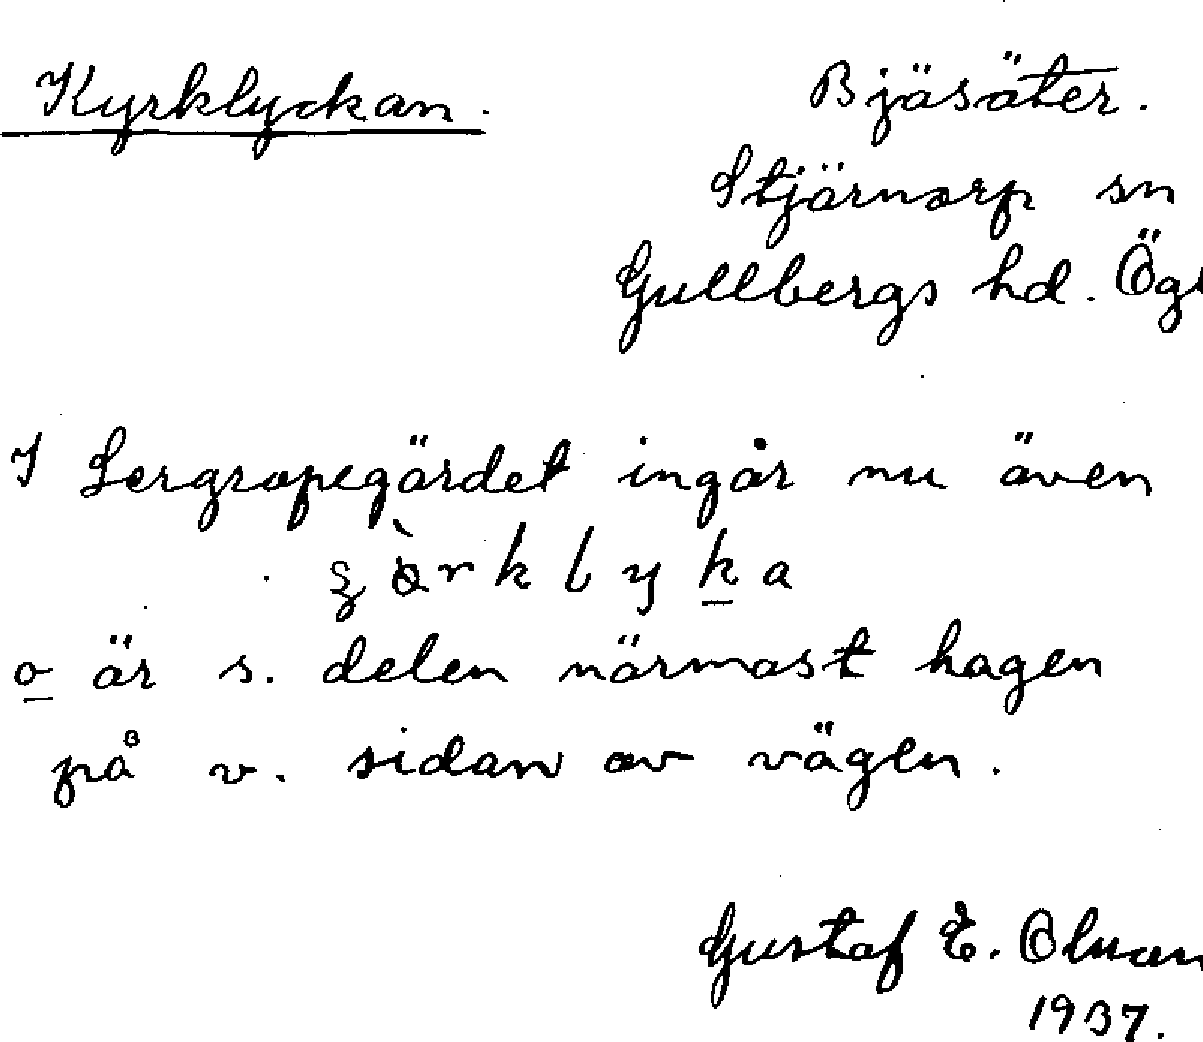 Kyrklyckan. Bjäsäter.
Stjärnorp sn
Gullbergs hd. Ögl
I Lergropegärdet ingår nu även
o är s. delen närmast hagen
på v. sidan av vägen.
Gustaf E. Olman
1937.